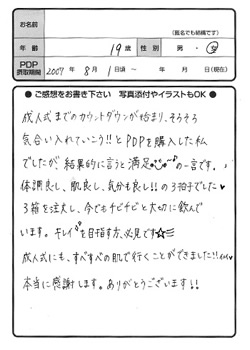 お名前
(匿名でも結構です)
年 齢 19歳 性 別 男・女
PDP 摂取期間 2007年 8月 1日頃 ～ 年 月 日 (現在)
● ご感想をお書き下さい 写真添付やイラストもOK ●
成人式までのカウントダウンが始まり、そろそろ
気合い入れていこう!!とPDPを購入した私
でしたが 結果的に言うと満足の一言です。
体調良し、肌良し、気分も良し!!の3拍子でした♥
3箱を注文し、今でもチビチビと大切に飲んで
います。キレイを目指す方、必見です☆彡
成人式にも、すべすべの肌で行くことができました!!
本当に感謝します。ありがとうございます!!